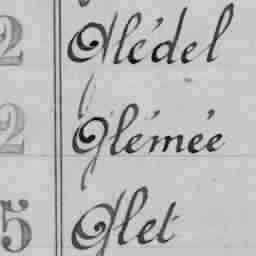 2 Glédel
2 Glémée
5 Glet